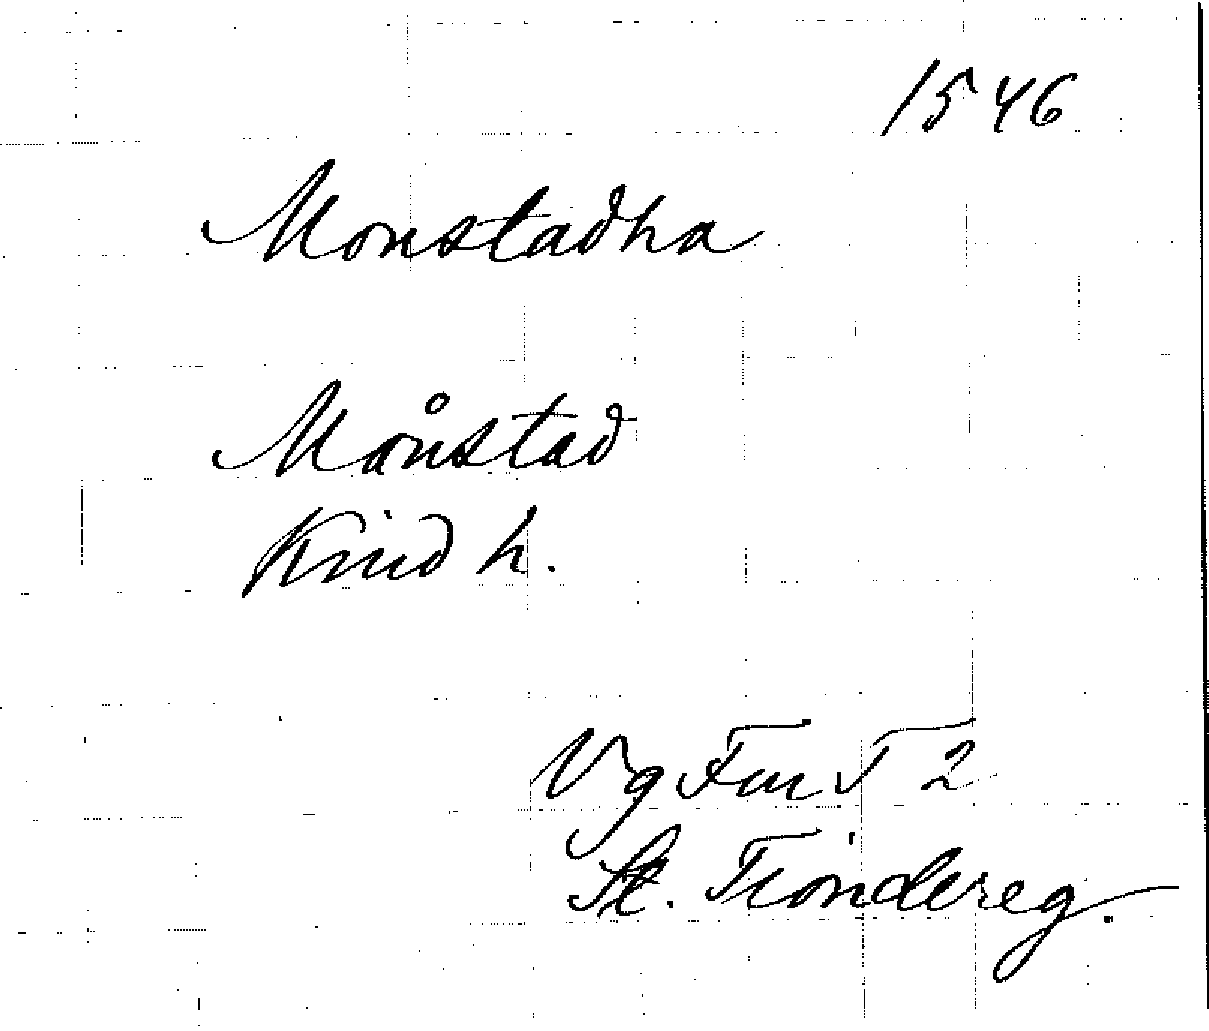 1546
Monstadha
Månstad
Kind h.
Vg Fur T 2
St. Tiondereg.